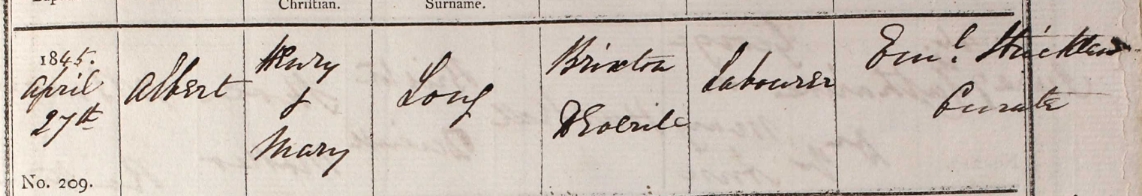 Christian.
Surname.
1845.
April
27th
Albert
Henry
&
Mary
Long
Brixton
Deverill
Labourer
Eml. Strickland
Curate
No. 209.